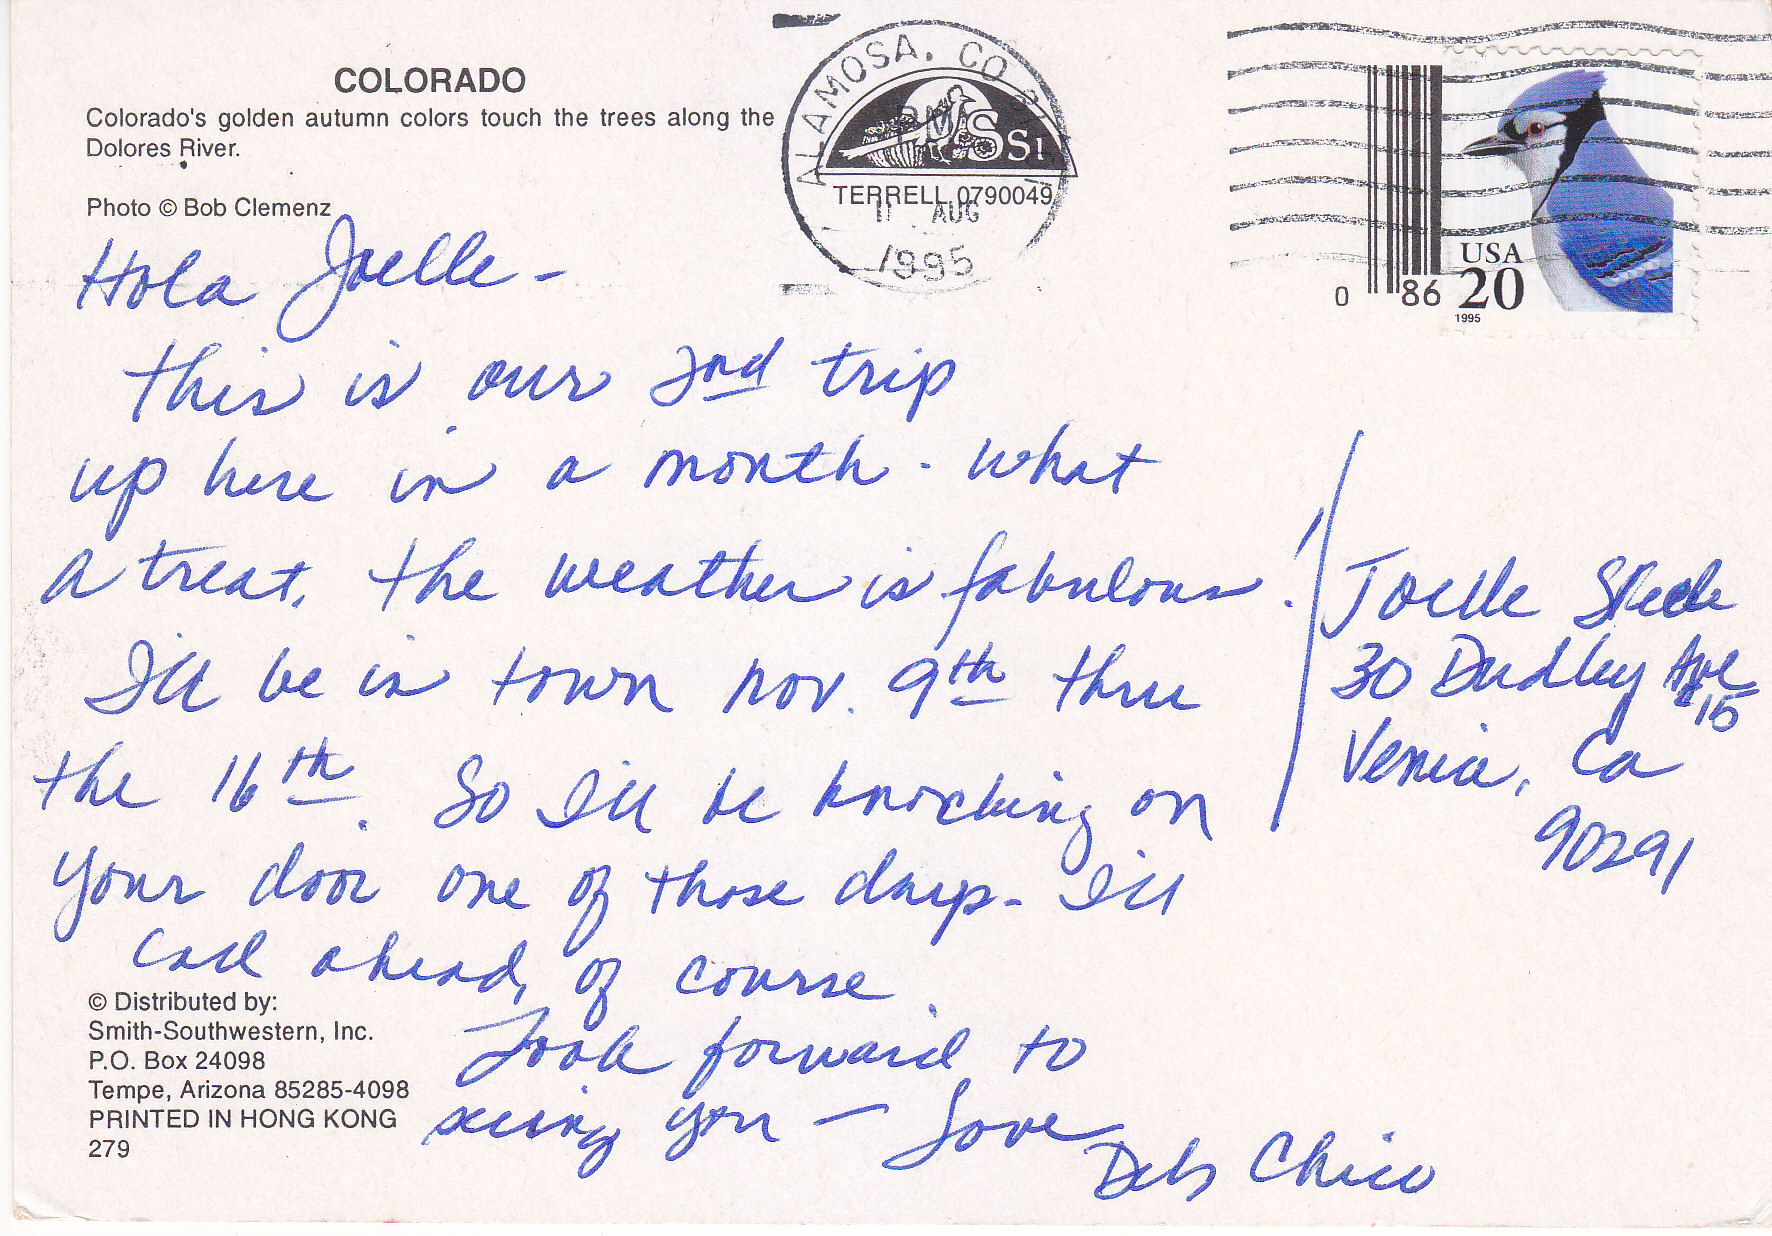 COLORADO
Colorado's golden autumn colors touch the trees along the
Dolores River.
Photo © Bob Clemenz
ALAMOSA, CO
SSI
TERRELL 0790049
11 AUG
1995
0 86
USA
20
1995
Hola Joelle -
This is our 2nd trip
up here in a month - what
a treat. The weather is fabulous!
I'll be in town Nov. 9th thru
the 16th. So I'll be knocking on
your door one of those days - I'll
call ahead, of course.
Look forward to
seeing you — Love
Deb Chico
Joelle Steele
30 Dudley Ave
#15
Venice, Ca
90291
© Distributed by:
Smith-Southwestern, Inc.
P.O. Box 24098
Tempe, Arizona 85285-4098
PRINTED IN HONG KONG
279